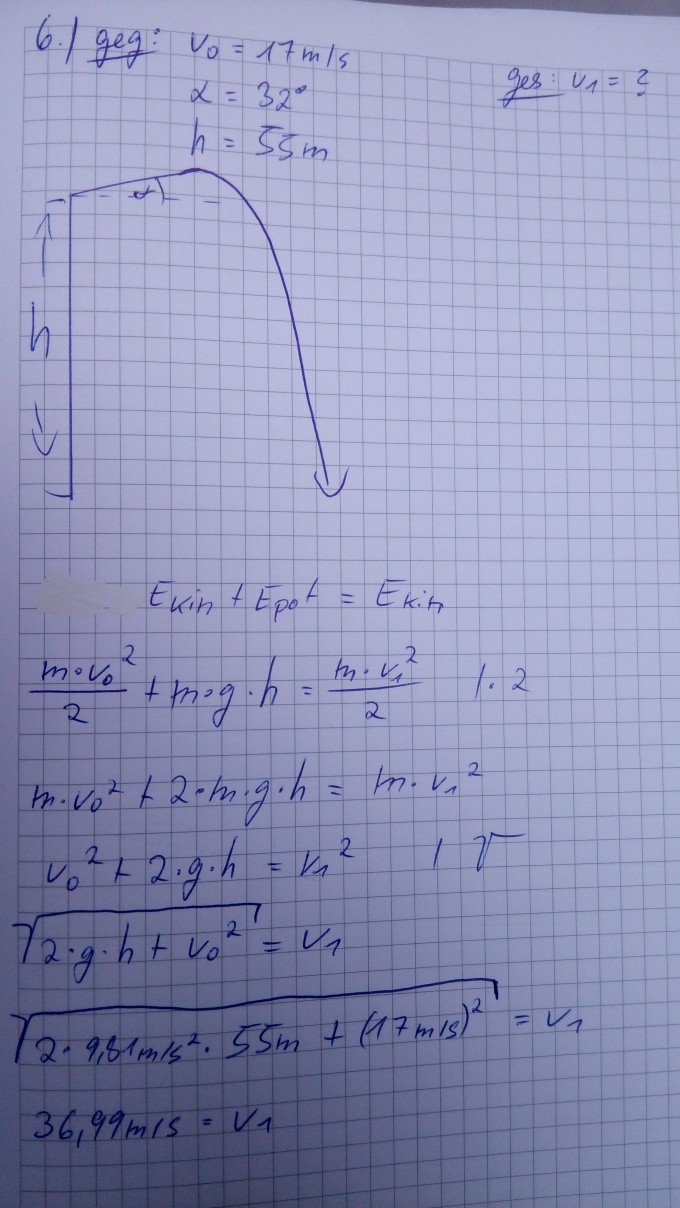 6.) geg: v₀ = 17 m/s
ges: v₁ = ?
α = 32°
h = 55 m
α
h
Ekin + Epot = Ekin
(m·v₀²)/2 + m·g·h = (m·v₁²)/2 | ·2
m·v₀² + 2·m·g·h = m·v₁²
v₀² + 2·g·h = v₁² | √
√(2·g·h + v₀²) = v₁
√(2·9,81m/s²·55m + (17m/s)²) = v₁
36,99m/s = v₁